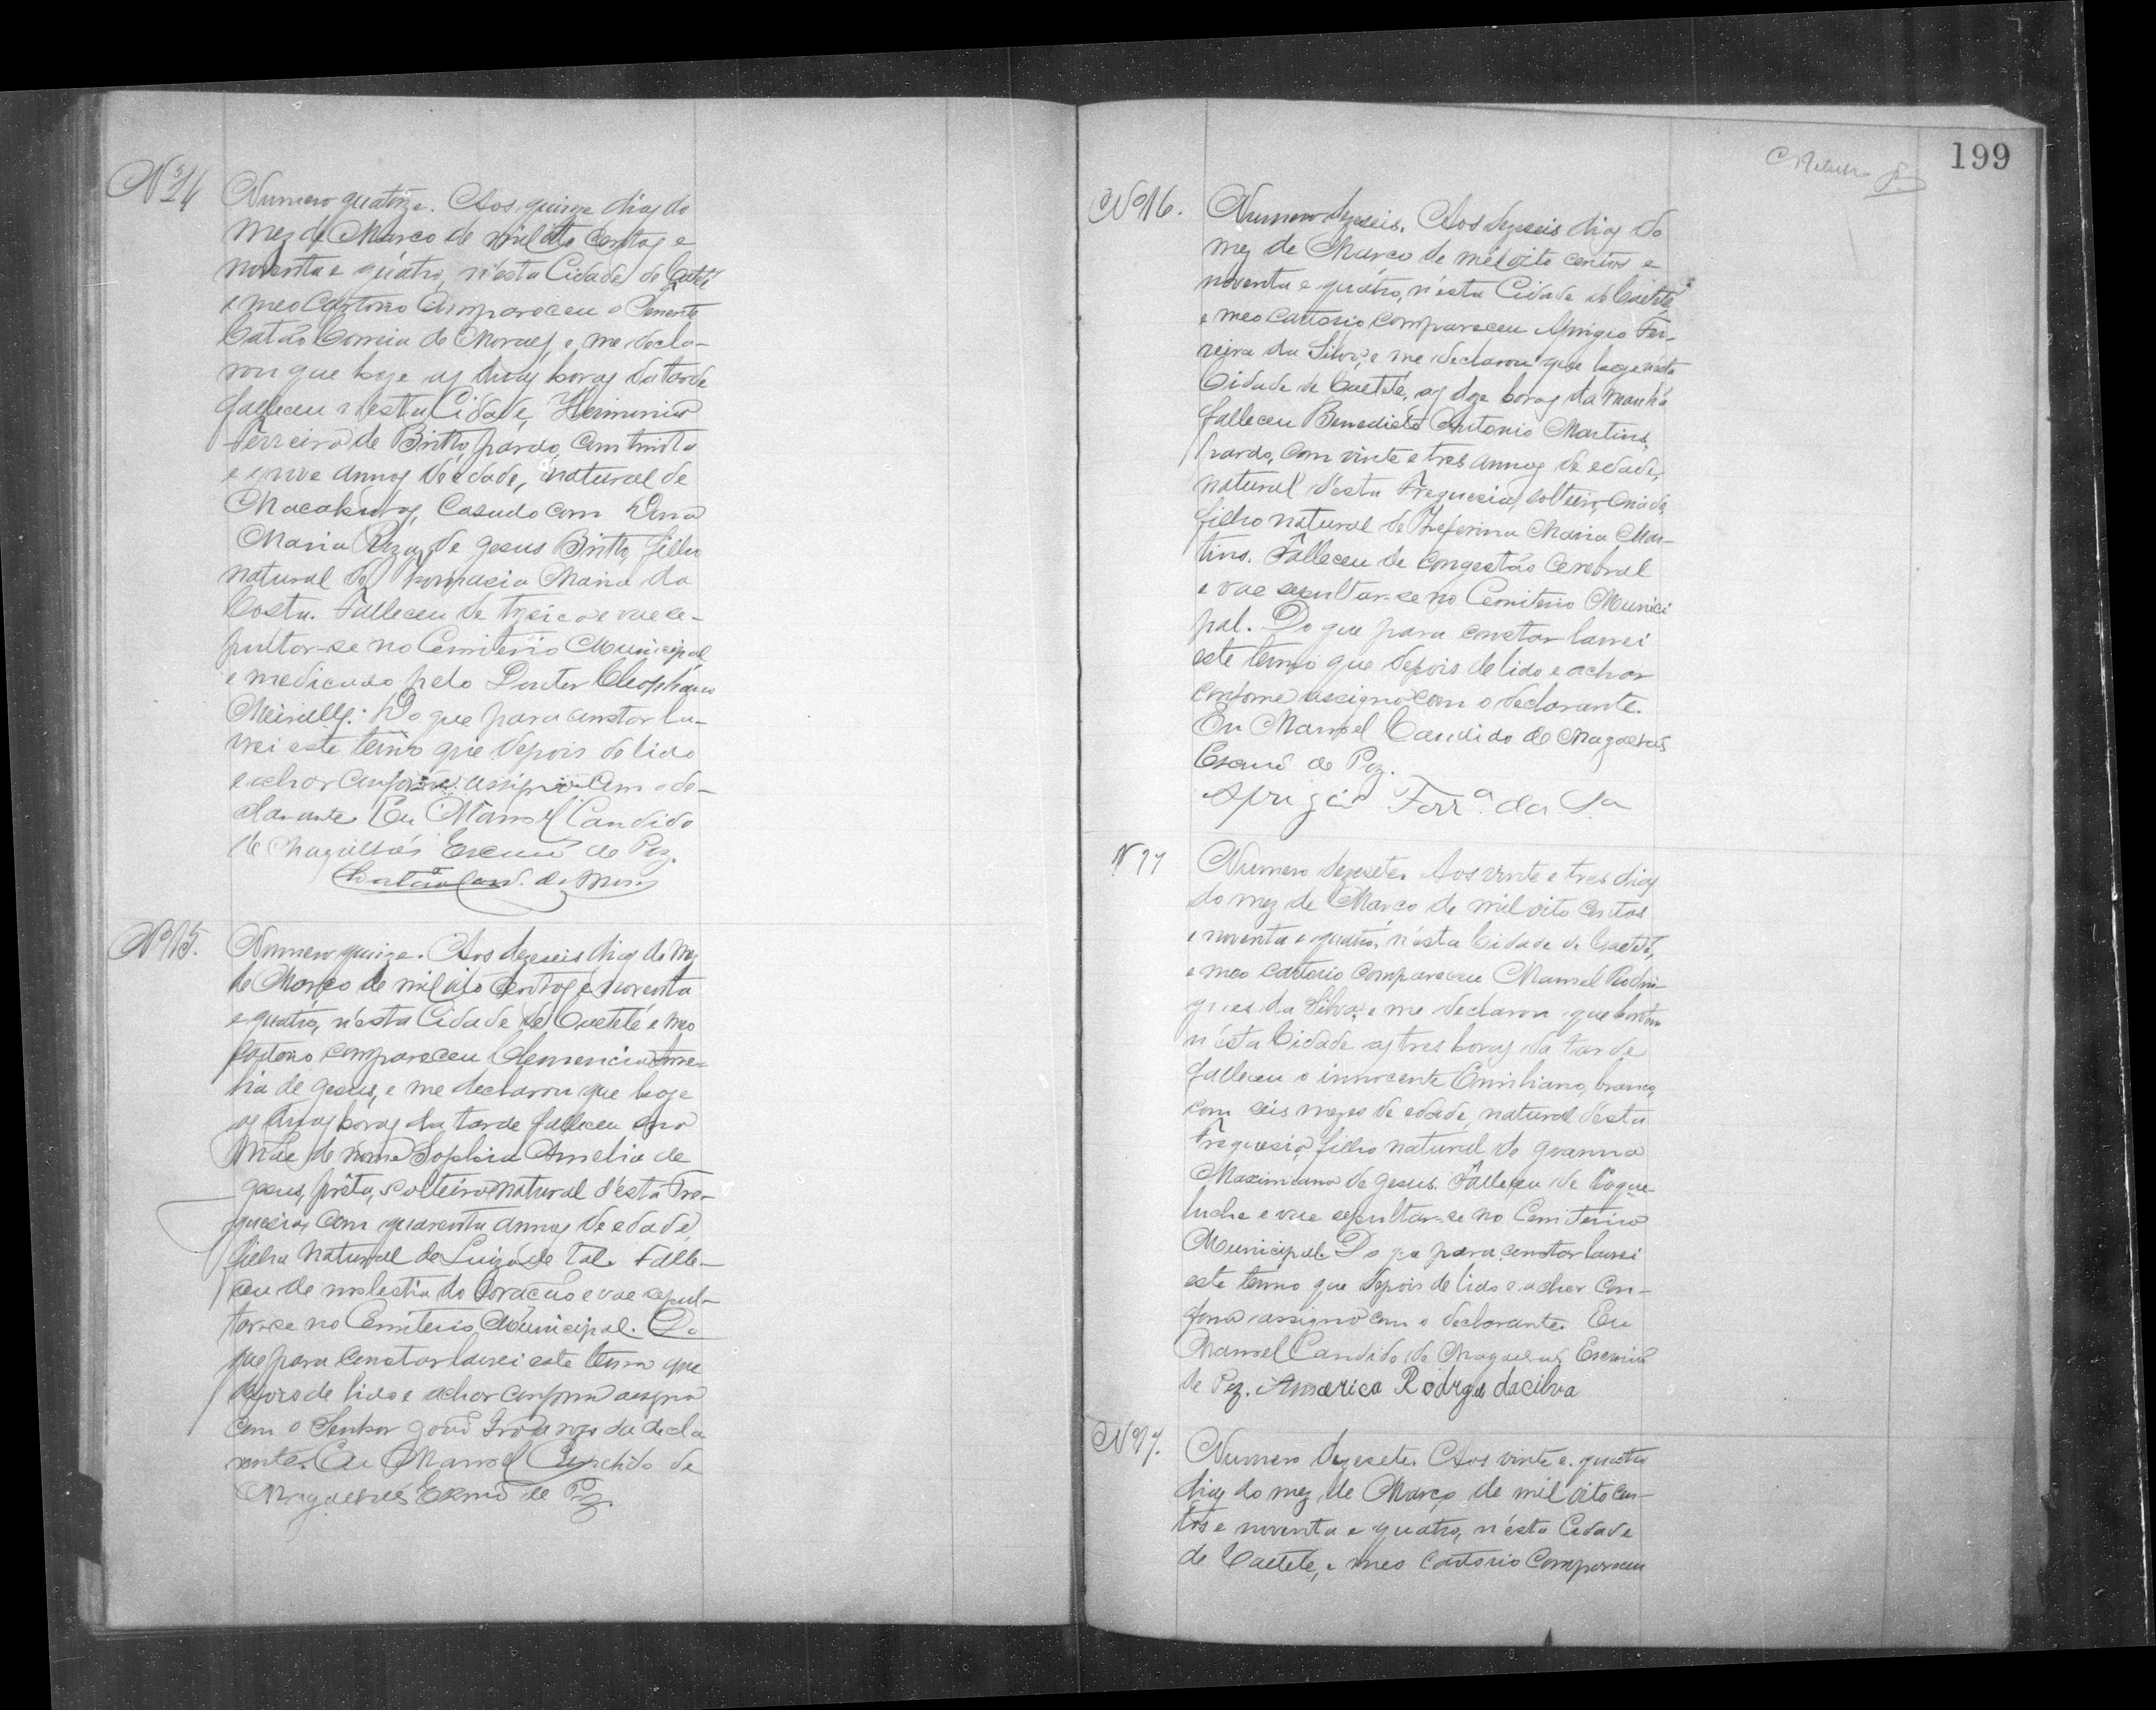 Nº 14
Numero quatorze. Aos quinze dias do
mez de Março de mil oito centos e
noventa e quatro, n'esta Cidade de Caeteté
e meo Cartorio Compareceu o Tenente
Catão Correia de Moraes, e me decla-
rou que hoje as duas horas da tarde
falleceu n'esta Cidade, Herminio
Ferreira de Britto, pardo, com trinta
e nove annos de edade, natural de
Macahubas, Casado com Dona
Maria Roza de Jesus Britto, filho
natural de Maria da
Costa. Falleceu de tysica e vae se-
pultar-se no Cemiterio Municipal
e medicado pelo Doutor Cleophano
Meirelles. Do que para constar la-
vrei este termo que depois de lido
e achar conforme assigno com o de-
clarante. Eu Manoel Candido
de Magalhães Escrivão de Paz.
Nº 15.
Numero quinze. Aos dezeseis dias do mez
de Março de mil oito centos e noventa
e quatro, n'esta Cidade de Caeteté e meo
Cartorio compareceu Clemencia Ame-
lia de Jesus, e me declarou que hoje
as duas horas da tarde falleceu sua
Mãe de nome Sophia Amelia de
Jesus, prêta, solteira natural d'esta Fre-
guesia, com quarenta annos de edade,
filha natural de Luiza de tal. Falle-
ceu de molestia do Coração e vae sepul-
tar-se no Cemiterio Municipal. Do
que para constar lavrei este termo que
depois de lido e achar conforme assigno
com o Senhor João a rogo da decla
rante. Eu Manoel Candido de
Magalhães Escrivão de Paz.
199
Nº 16.
Numero dezeseis. Aos dezeseis dias do
mez de Março de mil oito centos e
noventa e quatro, n'esta Cidade de Caeteté
e meo cartorio compareceu Aprigio Fer-
reira da Silva, e me declarou que hoje n'esta
Cidade de Caeteté, as doze horas da manhã
falleceu Benedicto Antonio Martins,
pardo, com vinte e tres annos de edade,
natural d'esta Freguesia, solteiro, criado,
filho natural de Zeferina Maria Mar-
tins. Falleceu de Congestão Cerebral
e vae sepultar-se no Cemiterio Munici
pal. Do que para constar lavrei
este termo que depois de lido e achar
conforme assigno com o declarante.
Eu Manoel Candido de Magalhães
Escrivão de Paz.
Aprigio Ferrª. da Sª
N 17
Numero dezesete. Aos vinte e tres dias
do mez de Março de mil oito centos
e noventa e quatro, n'esta Cidade de Caeteté,
e meo cartorio compareceu Manoel Rodri-
gues da Silva, e me declarou que hontem
n'esta Cidade as tres horas da tarde
falleceu o innocente Emiliano, branco,
com seis mezes de edade, natural d'esta
Freguesia, filho natural de Joanna
Maximiana de Jesus. Falleceu de Coque-
luche e vae sepultar-se no Cemiterio
Municipal. Do que para constar lavrei
este termo que depois de lido e achar con-
forme assigno com o declarante. Eu
Manoel Candido de Magalhães Escrivão
de Paz. Americo Rodrgs dacilva
Nº 17.
Numero dezesete. Aos vinte e quatro
dias do mez de Março de mil oito cen-
tos e noventa e quatro, n'esta Cidade
de Caeteté, e meo Cartorio Compareceu